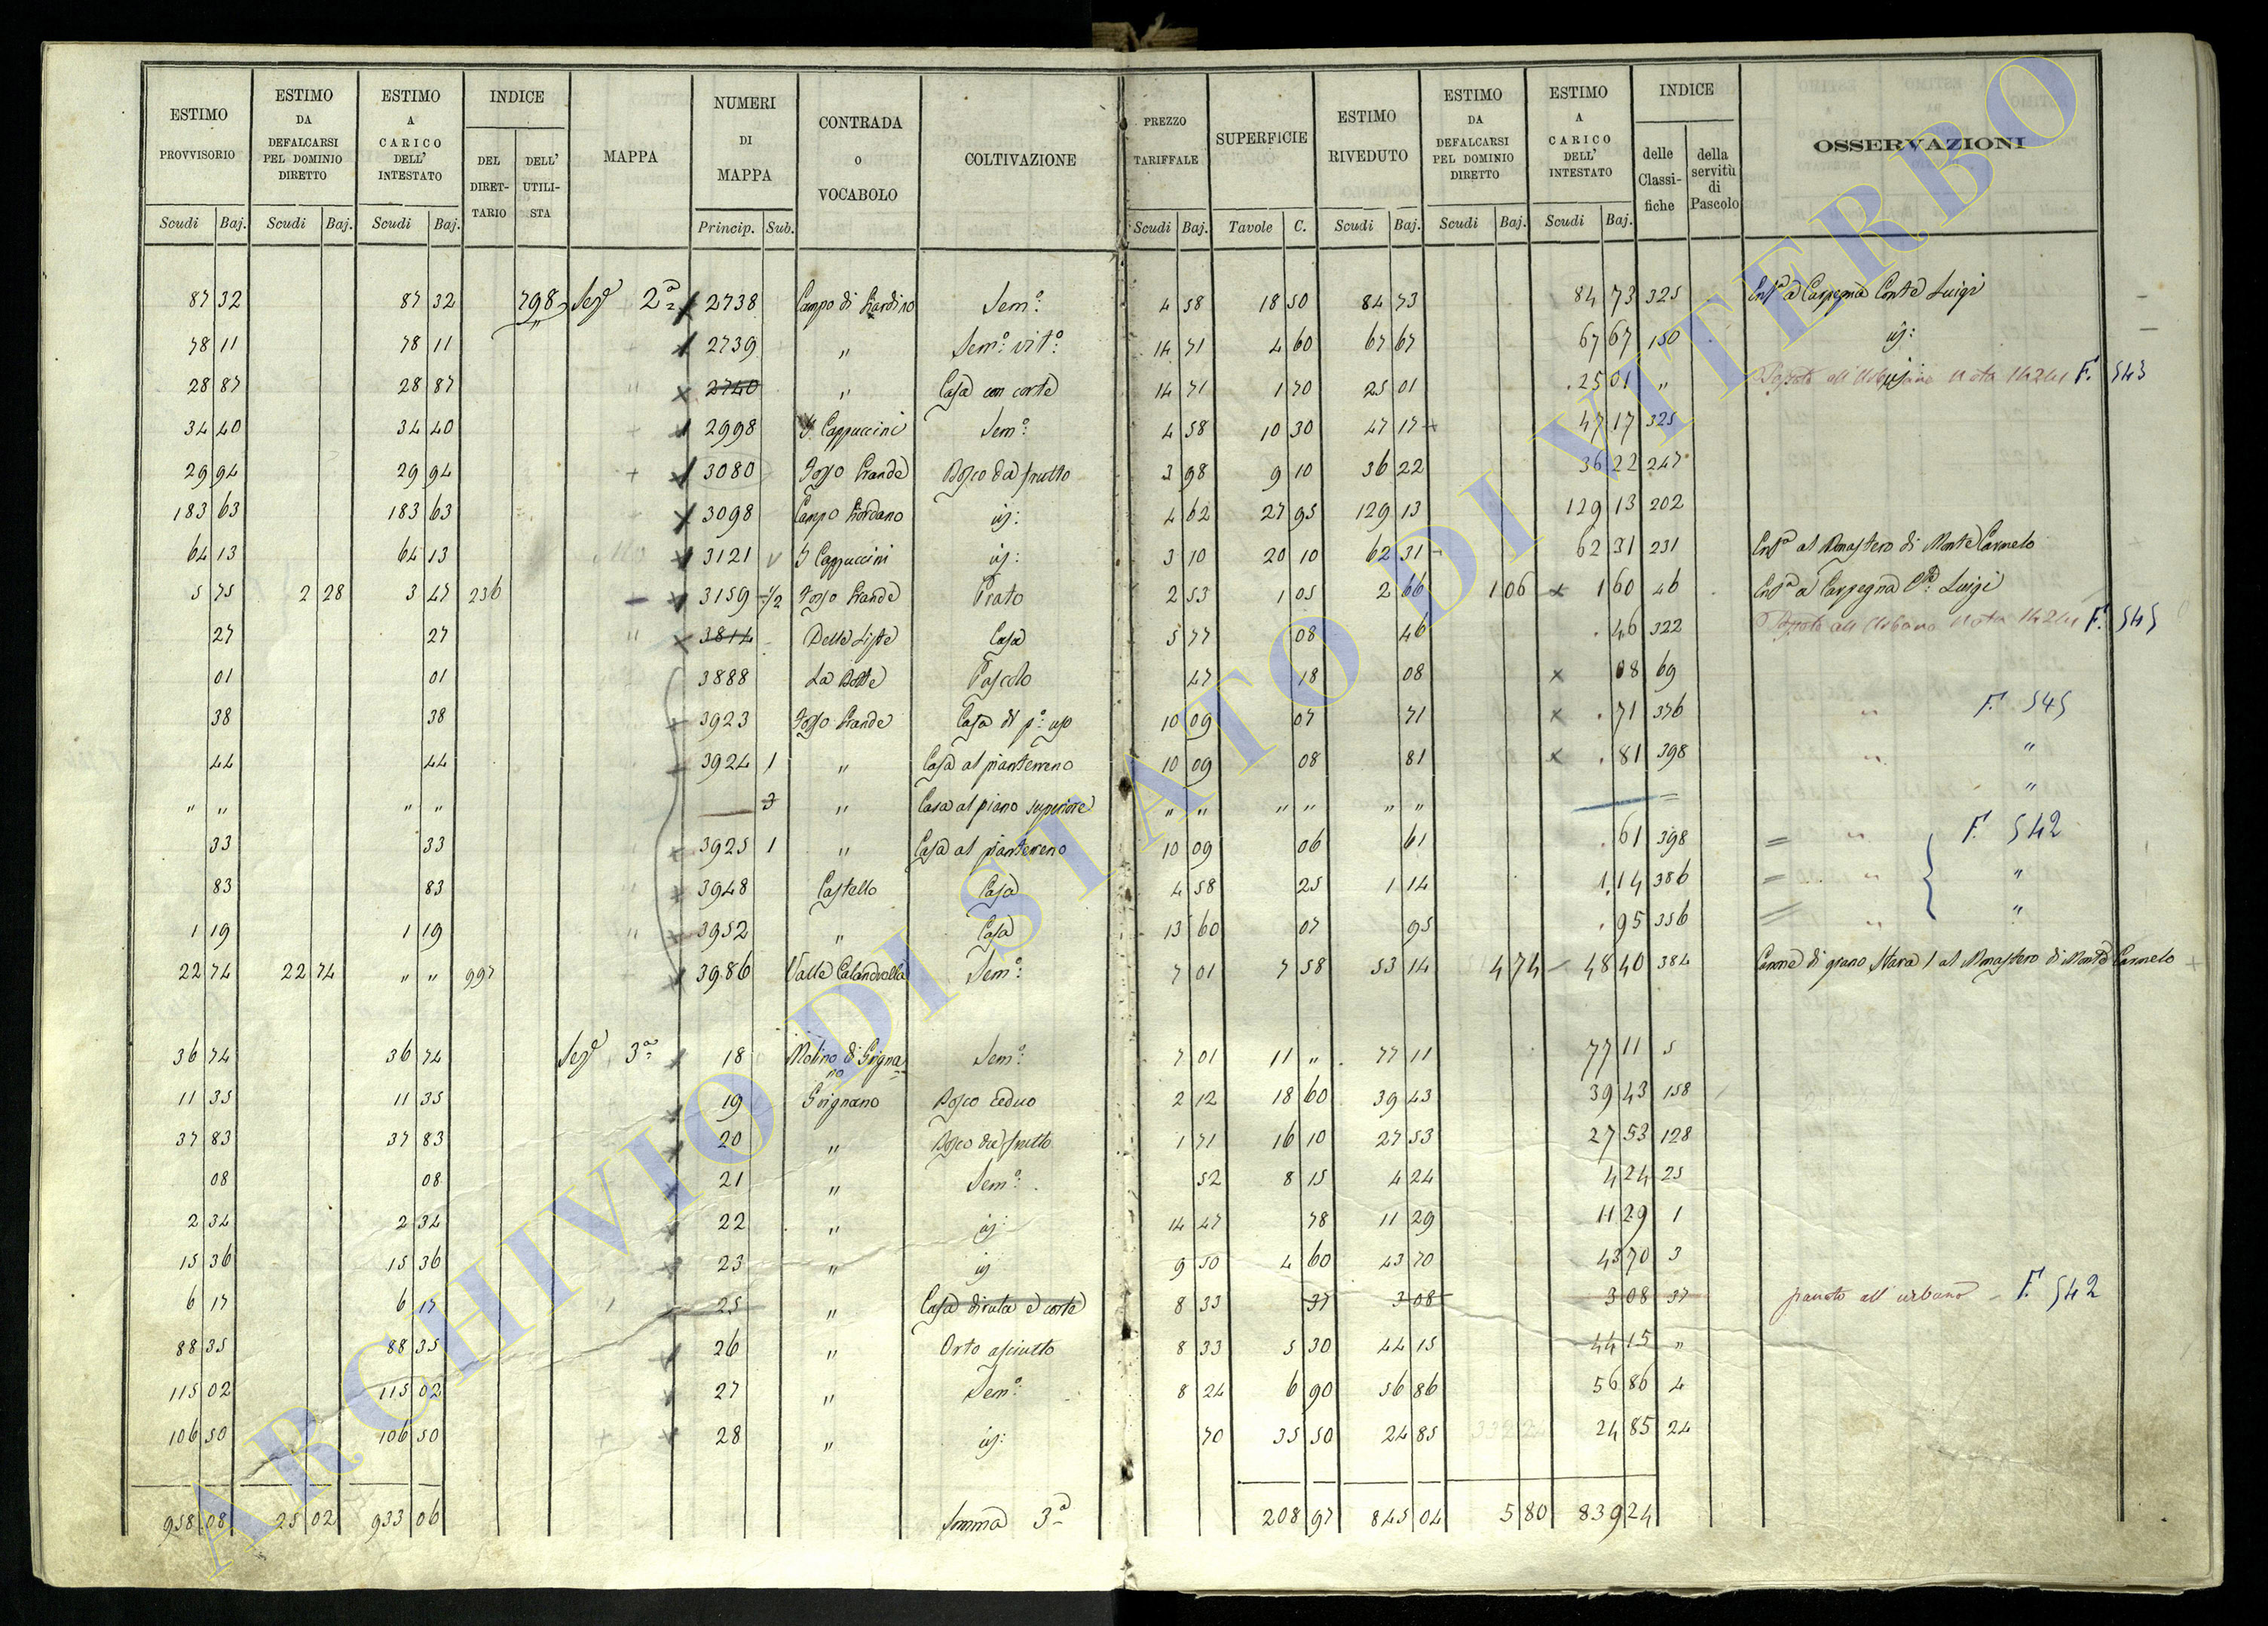 ESTIMO PROVVISORIO | ESTIMO DA DEFALCARSI PEL DOMINIO DIRETTO | ESTIMO A CARICO DELL' INTESTATO | INDICE | MAPPA | NUMERI DI MAPPA | CONTRADA O VOCABOLO | COLTIVAZIONE | PREZZO TARIFFALE | SUPERFICIE | ESTIMO RIVEDUTO | ESTIMO DA DEFALCARSI PEL DOMINIO DIRETTO | ESTIMO A CARICO DELL' INTESTATO | INDICE | OSSERVAZIONI
DEL DIRETTARIO | DELL' UTILISTA | delle Classifiche | della servitù di Pascolo
Scudi | Baj. | Scudi | Baj. | Scudi | Baj. | Princip. | Sub. | Scudi | Baj. | Tavole | C. | Scudi | Baj. | Scudi | Baj. | Scudi | Baj.
87 32 | 87 32 | 798 | Sez.e 2a | 2738 | Campo di Giardino | Sem.o | 4 58 | 18 50 | 84 73 | 84 73 | 325 | Enf.a a Carpegna Conte Luigi
78 11 | 78 11 | 2739 | " | Sem.o vit.o | 14 71 | 4 60 | 67 67 | 67 67 | 150 | id:
28 87 | 28 87 | 2740 | " | Casa con corte | 14 71 | 1 70 | 25 01 | 25 01 | " | id: F. 543
34 40 | 34 40 | 2998 | I Cappuccini | Sem.o | 4 58 | 10 30 | 47 17 | 47 17 | 325
29 94 | 29 94 | 3080 | Fosso Grande | Bosco da frutto | 3 98 | 9 10 | 36 22 | 36 22 | 247
183 63 | 183 63 | 3098 | Campo Giordano | id: | 4 62 | 27 95 | 129 13 | 129 13 | 202
64 13 | 64 13 | 3121 | I Cappuccini | id: | 3 10 | 20 10 | 62 31 | 62 31 | 231 | Enf.a al Monastero di Monte Carmelo
5 75 | 2 28 | 3 47 | 236 | 3159 1/2 | Fosso Grande | Prato | 2 53 | 1 05 | 2 66 | 1 06 | 1 60 | 46 | Enf.a a Carpegna C.te Luigi
27 | 27 | 3814 | Delle Liste | Casa | 5 77 | 08 | 46 | 46 | 322 | F. 545
01 | 01 | 3888 | La Botte | Pascolo | 47 | 18 | 08 | 08 | 69
38 | 38 | 3923 | Fosso Grande | Casa di p.o uso | 10 09 | 07 | 71 | 71 | 376 | " F. 545
44 | 44 | 3924 | 1 | " | Casa al pianterreno | 10 09 | 08 | 81 | 81 | 398 | " "
" " | " " | 3 | " | Casa al piano superiore | " " | " " | " " | "
33 | 33 | 3925 | 1 | " | Casa al pianterreno | 10 09 | 06 | 61 | 61 | 398 | " F. 542
83 | 83 | 3948 | Castello | Casa | 4 58 | 25 | 1 14 | 1 14 | 386 | " "
1 19 | 1 19 | 3952 | " | Casa | 13 60 | 07 | 95 | 95 | 356 | " "
22 74 | 22 74 | " " | 997 | 3986 | Valle Calandrella | Sem.o | 7 01 | 7 58 | 53 14 | 4 74 | 48 40 | 384 | Canone di grano Stara 1 al Monastero di Monte Carmelo
36 74 | 36 74 | Sez.e 3a | 18 | Molino di Grignano | Sem.o | 7 01 | 11 " | 77 11 | 77 11 | 5
11 35 | 11 35 | 19 | Grignano | Bosco Ceduo | 2 12 | 18 60 | 39 43 | 39 43 | 158
37 83 | 37 83 | 20 | " | Bosco da frutto | 1 71 | 16 10 | 27 53 | 27 53 | 128
08 | 08 | 21 | " | Sem.o | 52 | 8 15 | 4 24 | 4 24 | 25
2 34 | 2 34 | 22 | " | id: | 14 47 | 78 | 11 29 | 11 29 | 1
15 36 | 15 36 | 23 | " | id | 9 50 | 4 60 | 43 70 | 43 70 | 3
6 17 | 6 17 | 25 | " | Casa diruta e corte | 8 33 | 37 | 3 08 | 3 08 | 37 | passato all'urbano F. 542
88 35 | 88 35 | 26 | " | Orto asciutto | 8 33 | 5 30 | 44 15 | 44 15 | "
115 02 | 115 02 | 27 | " | Sem.o | 8 24 | 6 90 | 56 86 | 56 86 | 4
106 50 | 106 50 | 28 | " | id: | 70 | 35 50 | 24 85 | 24 85 | 24
958 08 | 25 02 | 933 06 | Somma 3a | 208 97 | 845 04 | 5 80 | 839 24
ARCHIVIO DI STATO DI VITERBO